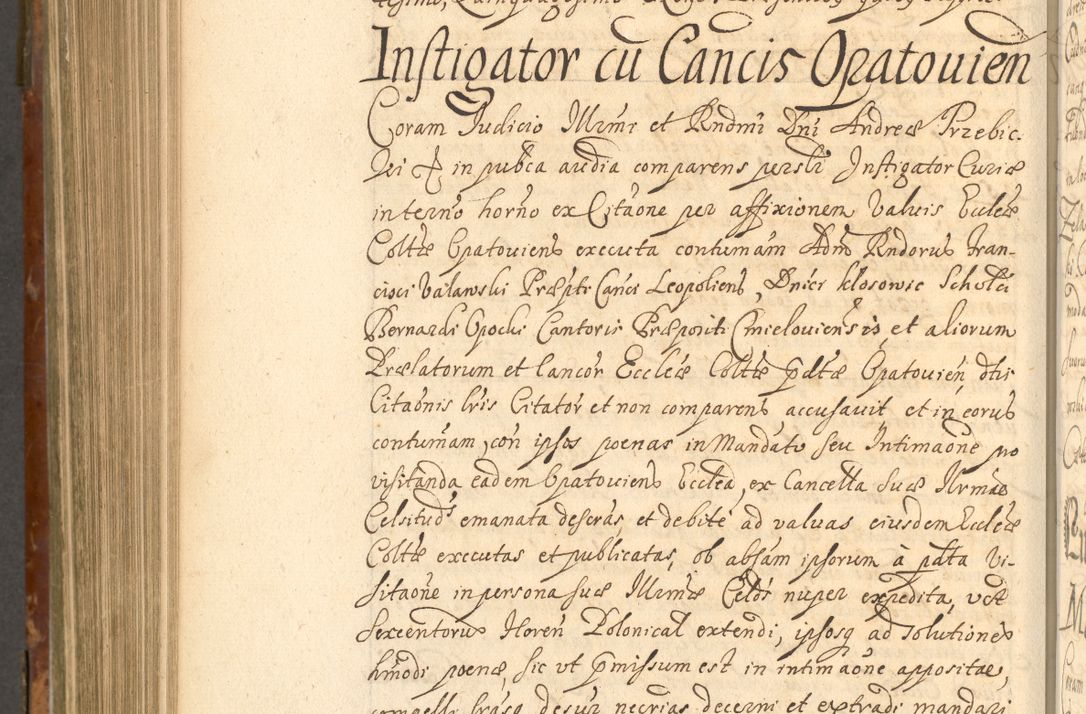 Instigator cu Cancis Opatouien
Coram Judicio Illrmi et Rndmi Dni Andreæ Przebic
in pubca audia comparens persli Instigator Curiæ
in termo horno ex Citaone per affixionem Valuis Eccleæ
Coltæ Opatouiens executa contumam Adm Rndorus Fran-
cisci Valawski Præptr Canci Leopoliens, Dnici Kłosowic Scholci
Bernardi Opocki Cantoris Præpositi Cmielouiensis, et aliorum
Prælatorum et Cancor Eccleiæ Coltæ pdtæ Opatouien, dtis
Citaonis lris Citator et non comparens accusauit, et in eorus
contumam, con ipsos poenas in Mandato seu Intimaone pro
visitanda eadem Opatouiens Ecclea, ex Cancella suæ Ilrmæ
Celsituds emanata descras, et debite ad valuas eiusdem Eccleæ
Coltæ executas et publicatas, ob absam ipsorum à pdta Vi-
sitaone in persona suæ Illrmæ Celdis nuper expedita, vct
Sexcentorus Floren Polonical extendi, ipsosq ad solutiones
hmodi poenæ, sic ut pmissum est in intimaone appositae,
compelli desup necrias decerni et extradi mandari